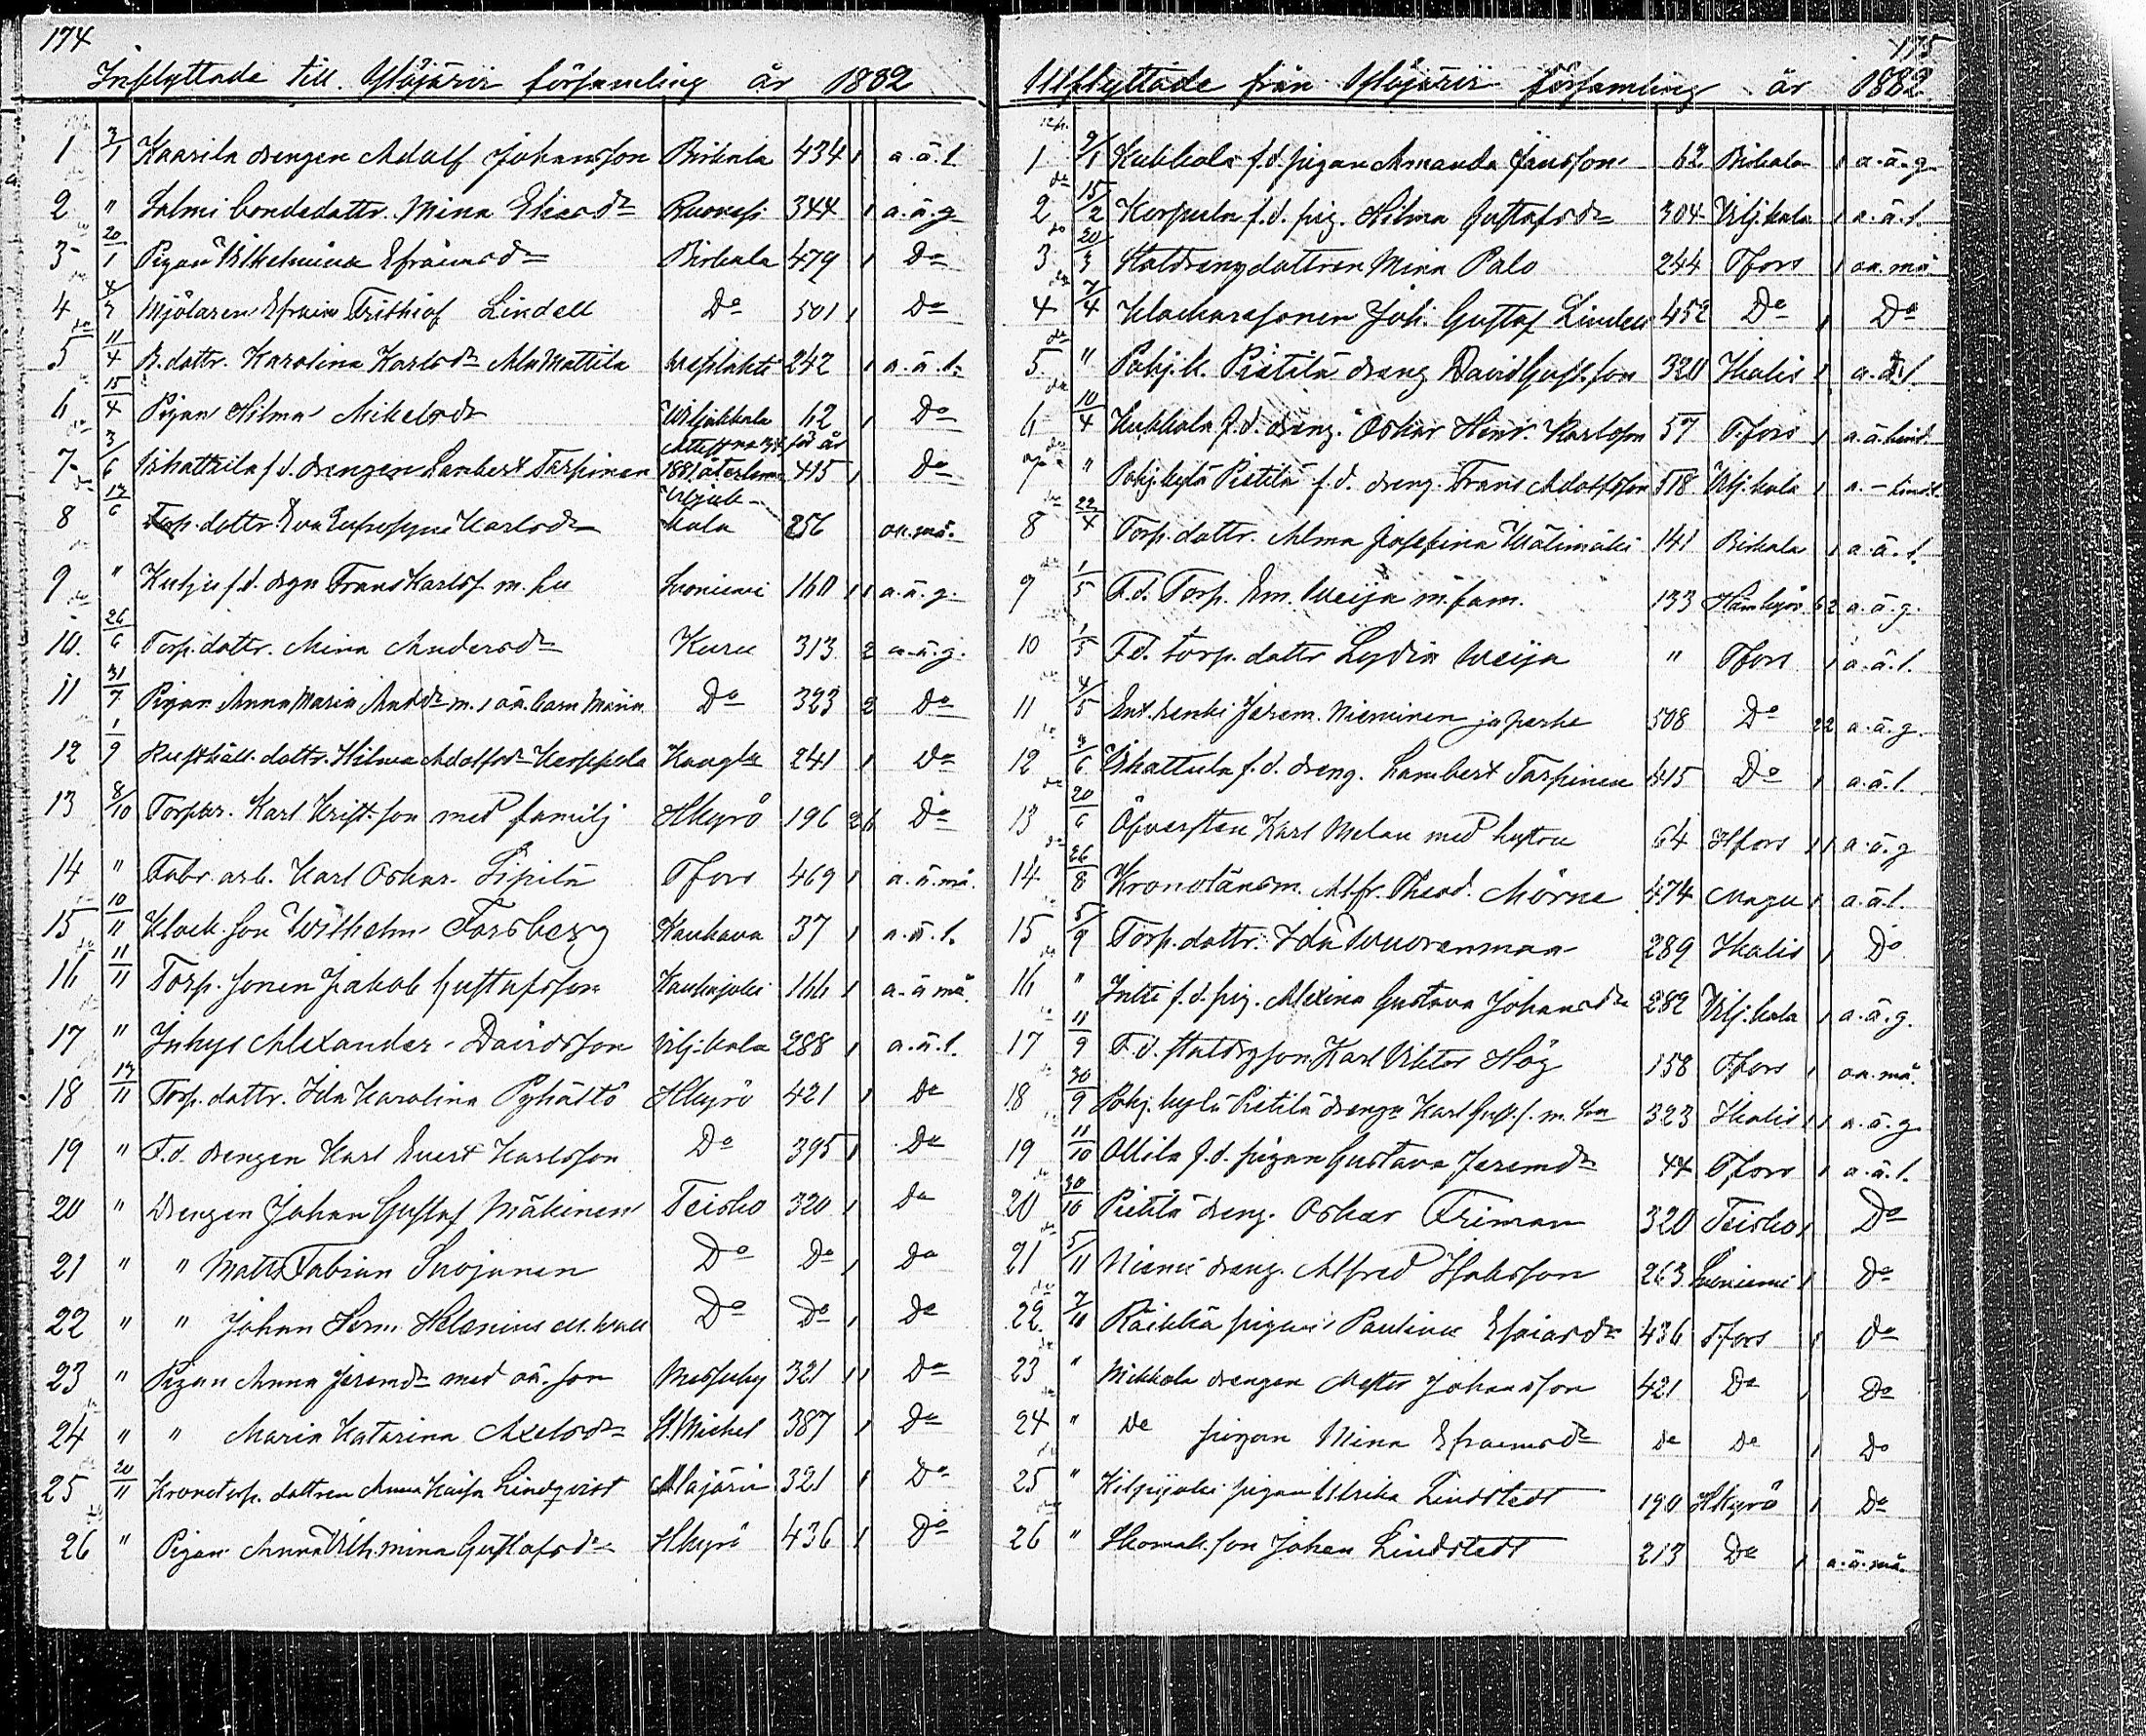 174
Inflyttade till Ylöjärvi församling år 1882
1 3/1 Kaarila drengen Adolf Johansson Birkala 434 1 a.ä.l.
2 " Salmi bondedattr. Mina Eliasdr Ruovesi 344 1 a.ä.g.
3 20/1 Pigan Vilhelmina Efraimsdr Birkala 479 1 Do
4 Mjölaren Efraim Frithiof Lindell Do 501 1 Do
5 11/4 B.dattr. Karolina Karlsdr Ala Mattila Wesilahti 242 1 a.ä.l.
6 15/4 Pigan Hilma Mikelsdr Viljakkala 62 1 Do
7 3/6 f.d. drengen Lambert Tarpinen 1881 återlem 415 1 Do
8 17/6 Torp. dattr. Eva Eufrosyne Karlsdr Viljak-kala 256 oa.må.
9 " f.d. drgn Frans Karlss. m. hu Lavia 160 1 1 a.ä.g.
10. 26/6 Torp. dattr. Mina Andersdr Kuru 313 2 a.ä.g.
11 31/7 Pigan Anna Maria Andrdr m. 1 oä. barn Maria Do 323 2 Do
12 1/9 Rusthåll. dattr. Hilma Adolfsdr Keippola 241 1 Do
13 8/10 Torpar. Karl Krist.son med familj Hkyrö 196 2 6 Do
14 " Fabr. arb. Karl Oskar Sipilä Tfors 469 1 a.ä.må.
15 10/11 Klock. son Wilhelm Forsberg Kauhava 37 1 a.ä.l.
16 11/11 Torp. sonen Jakob Gustafsson Kauhajoki 166 1 a.ä må.
17 " Inhys Alexander Davidsson Vilj.kala 288 1 a.ä.l.
18 17/11 Torp. dattr. Ida Karolina Pyhältö Hkyrö 421 1 Do
19 " F.d. drengen Karl Evert Karlsson Do 395 1 Do
20 " Drengen Johan Gustaf Mäkinen Teisko 320 1 Do
21 " " Matts Fabian Suojanen Do Do 1 Do
22 " " Johan Herm. Helenius Do Do 1 Do
23 " Pigan Anna Jeremdr med oä. son Messuby 321 1 1 Do
24 " " Maria Katarina Axelsdr St. Michel 387 1 Do
25 20/11 Kronotorp. dattren Anna Kaisa Lindqvist Alajärvi 321 1 Do
26 " Pigan Anna Vilhelmina Gustafsdr Hkyrö 436 1 Do
175
Utflyttade från Ylöjärvi församling år 1882
1 9/1 Kukkola f.d. pigan Amanda Jansson 62 Birkala 1 a.ä.g
2 15/2 Korpula f.d. pig. Hilma Gustafsdr 304 Vilj.kala 1 a.ä.l.
3 20/3 Statdrengdattren Mina Palo 244 Tfors 1 oa.må
4 7/4 Klockaresonen Joh. Gustaf Lindell 452 Do 1 Do
5 " Pohj.k. Pietilä dreng David Gust.son 320 Ikalis 1 a.ä.l.
6 10/4 Kukkola f.d. dreng. Oskar Henr. Karlsson 57 T.fors 1
7 " Pohj.kylä Pietilä f.d. dreng. Frans Adolfsson 518 Vilj.kala 1
8 22/4 Torp. dattr. Alma Josefina Wälimäki 141 Birkala 1 a.ä.l.
9 1/5 F.d. Torp. Em. Weija m. fam. 133 Hämkyrö 5 2 a.ä.g.
10 1/5 F.d. torp. dattr Lydia Weija " Tfors 1 a.ä.l.
11 4/5 Ent. renki Jerem. Nieminen ja perhe 508 Do 2 2 a.ä.g.
12 f.d. dreng. Lambert Tarpinen 415 Do 1 a.ä.l.
13 20/6 Öfversten Karl Melan med hustru 64 Hfors 1 1 a.ä.g
14 26/8 Kronolänsm. Alfr. Theod. Mörne 474 Magu 1 a.ä.l.
15 5/9 Torp. dattr. Ida Wuorenmaa 289 Ikalis 1 Do
16 " f.d. pig. Alexina Gustava Johansdr 282 Vilj.kala 1 a.ä.g.
17 11/9 F.d. statdrgson Karl Viktor Hög 158 Tfors 1 oa.må.
18 30/9 Pohj.kylä Pietilä drengn Karl Gust.s. m. hu 323 Ikalis 1 1 a.ä.g.
19 11/10 Ollila f.d. pigan Gustava Jeremdr 44 Tfors 1 a.ä.l.
20 30/10 Pietilä dreng. Oskar Friman 320 Teisko 1 Do
21 5/11 Niemi dreng. Alfred Isaksson 263 1 Do
22 Räikkä pigan Paulina Esaiasdr 436 Tfors 1 Do
23 " Mikkola drengen Johansson 421 Do 1 Do
24 " Do pigan Mina Efraimsdr Do Do 1 Do
25 " Kilpijoki pigan Ulrika Lindstedt 190 Hkyrö 1 Do
26 " Skomak. son Johan Lindstedt 213 Do 1 a.ä.må.